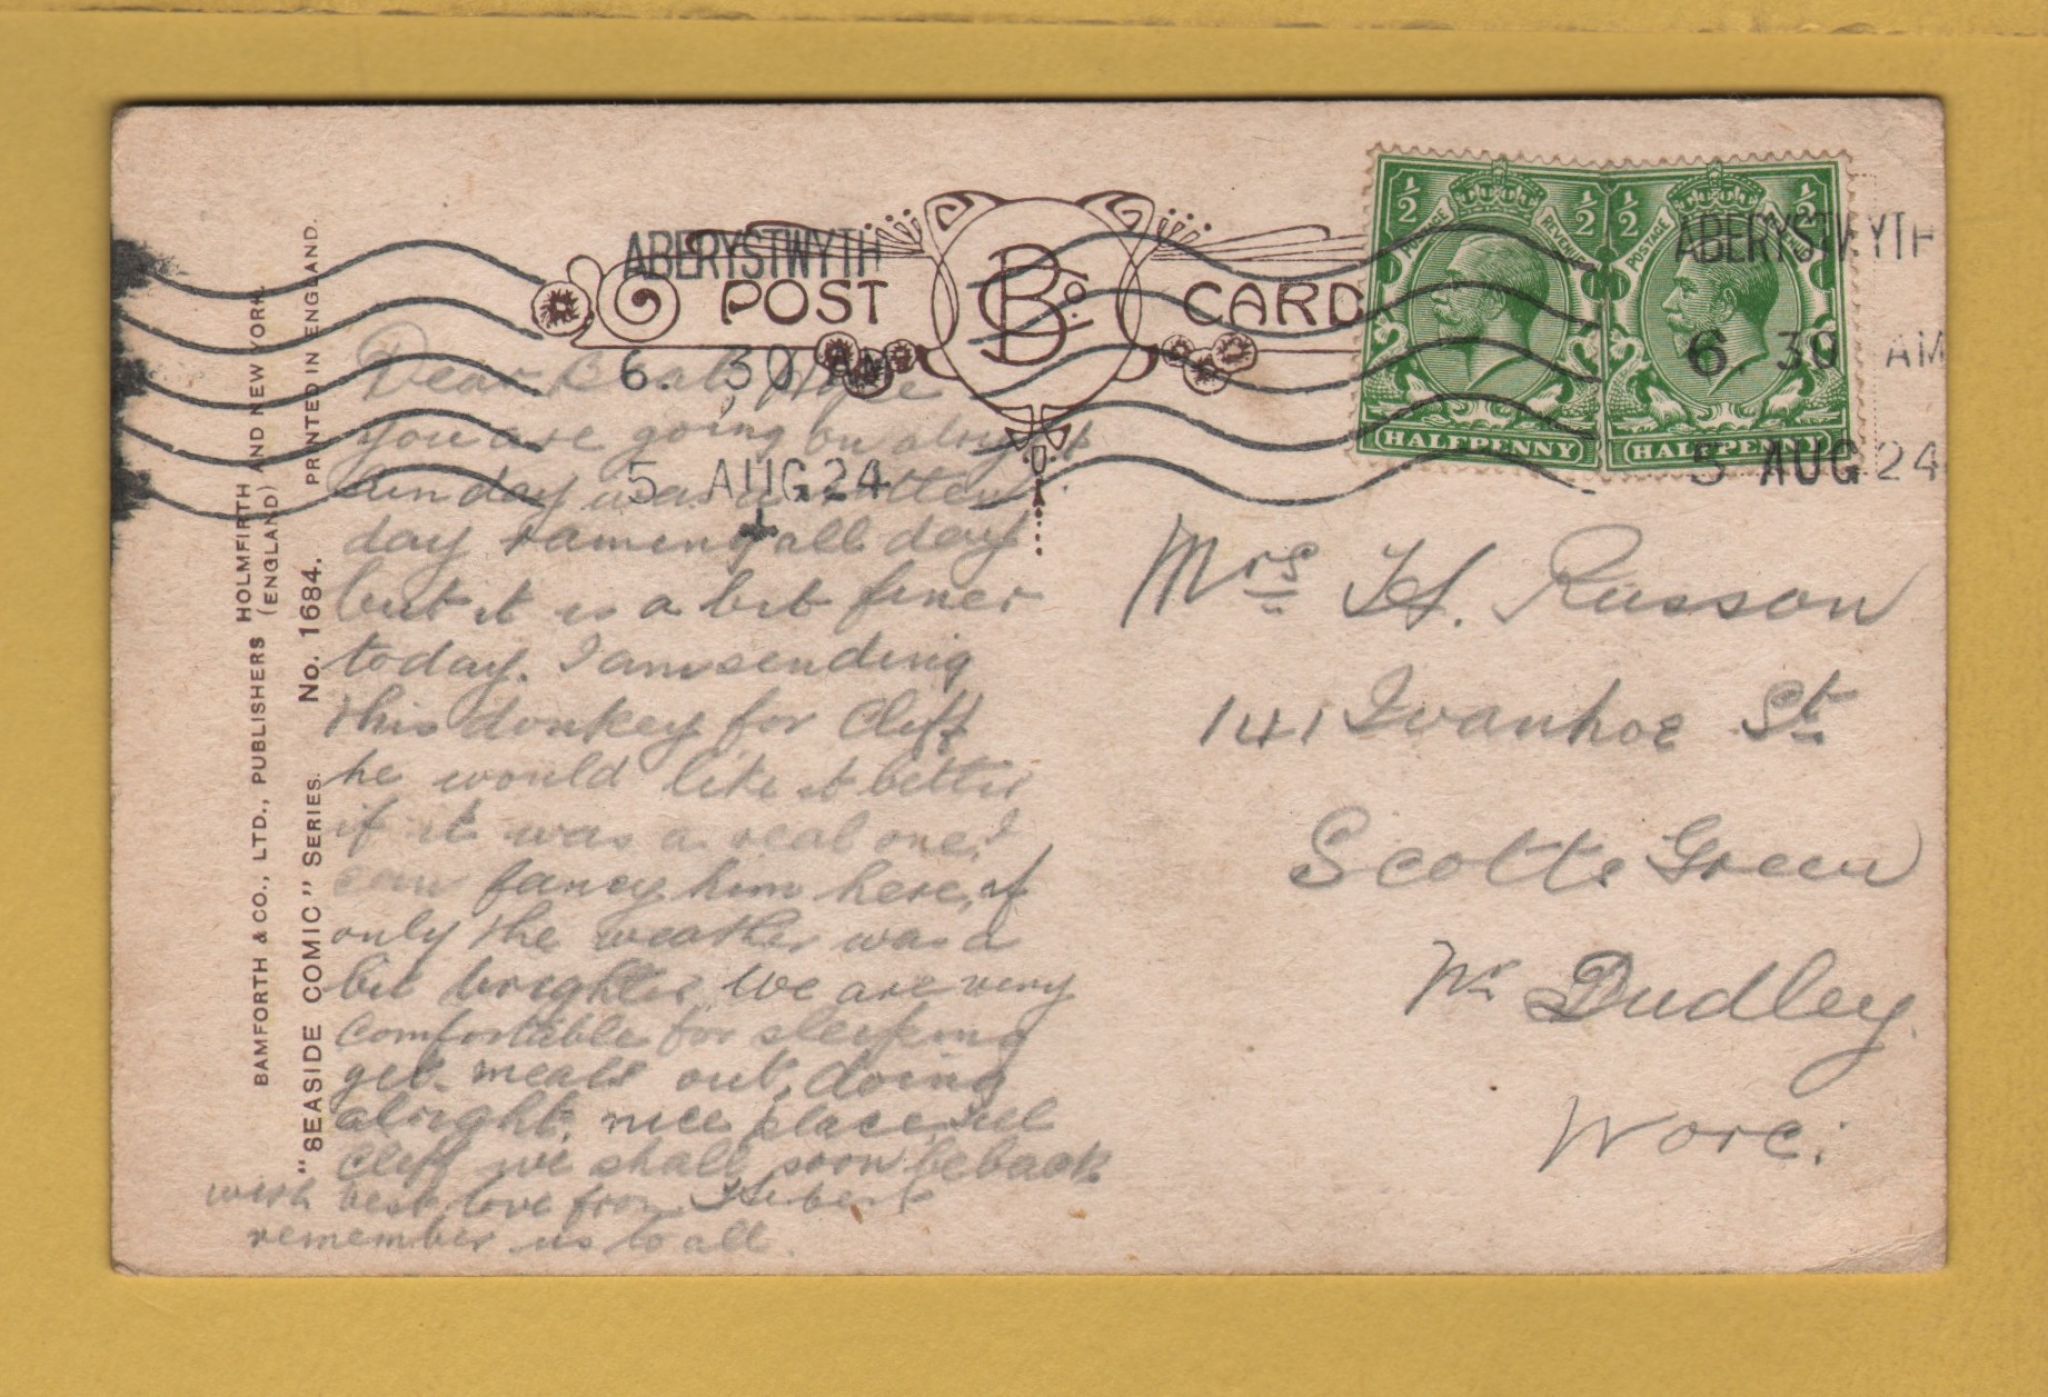 ABERYSTWYTH
6. 30 AM
5 AUG 24
POST CARD
B Co.
½ ½
POSTAGE REVENUE
HALFPENNY
½ ½
POSTAGE REVENUE
HALFPENNY
ABERYSTWYTH
6. 30 AM
5 AUG 24
BAMFORTH & CO., LTD., PUBLISHERS HOLMFIRTH AND NEW YORK.
(ENGLAND) PRINTED IN ENGLAND.
"SEASIDE COMIC" SERIES. No. 1684.
Dear Hope
you are going on alright
Sunday was a rotten
day raining all day
but it is a bit finer
today. I am sending
this donkey for Cliff
he would like it better
if it was a real one. I
can fancy him here, if
only the weather was a
bit brighter We are very
comfortable for sleeping
get meals out, doing
alright. nice place, tell
Cliff we shall soon be back
with best love from Hubert
remember us to all.
Mrs H. Russon
141 Ivanhoe St
Scotts Green
Nr Dudley.
Worc: